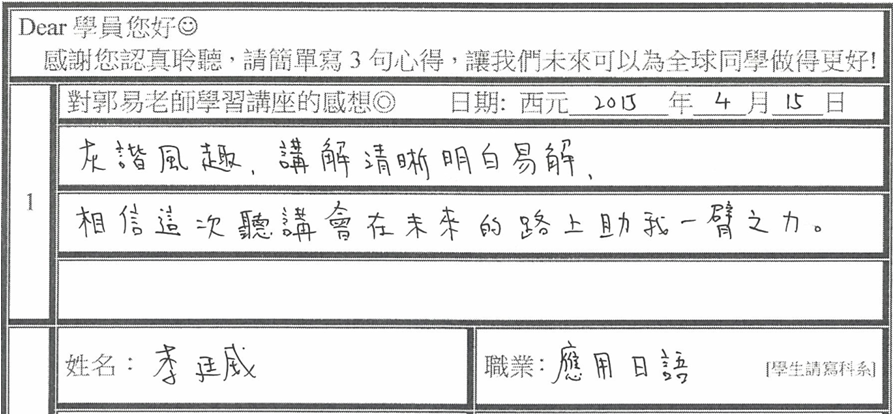 Dear 學員您好☺
感謝您認真聆聽，請簡單寫 3 句心得，讓我們未來可以為全球同學做得更好!
對郭易老師學習講座的感想◎ 日期: 西元 2015 年 4 月 15 日
1
灰諧風趣，講解清晰明白易解，
相信這次聽講會在未來的路上助我一臂之力。
姓名： 李廷威 職業: 應用日語 [學生請寫科系]